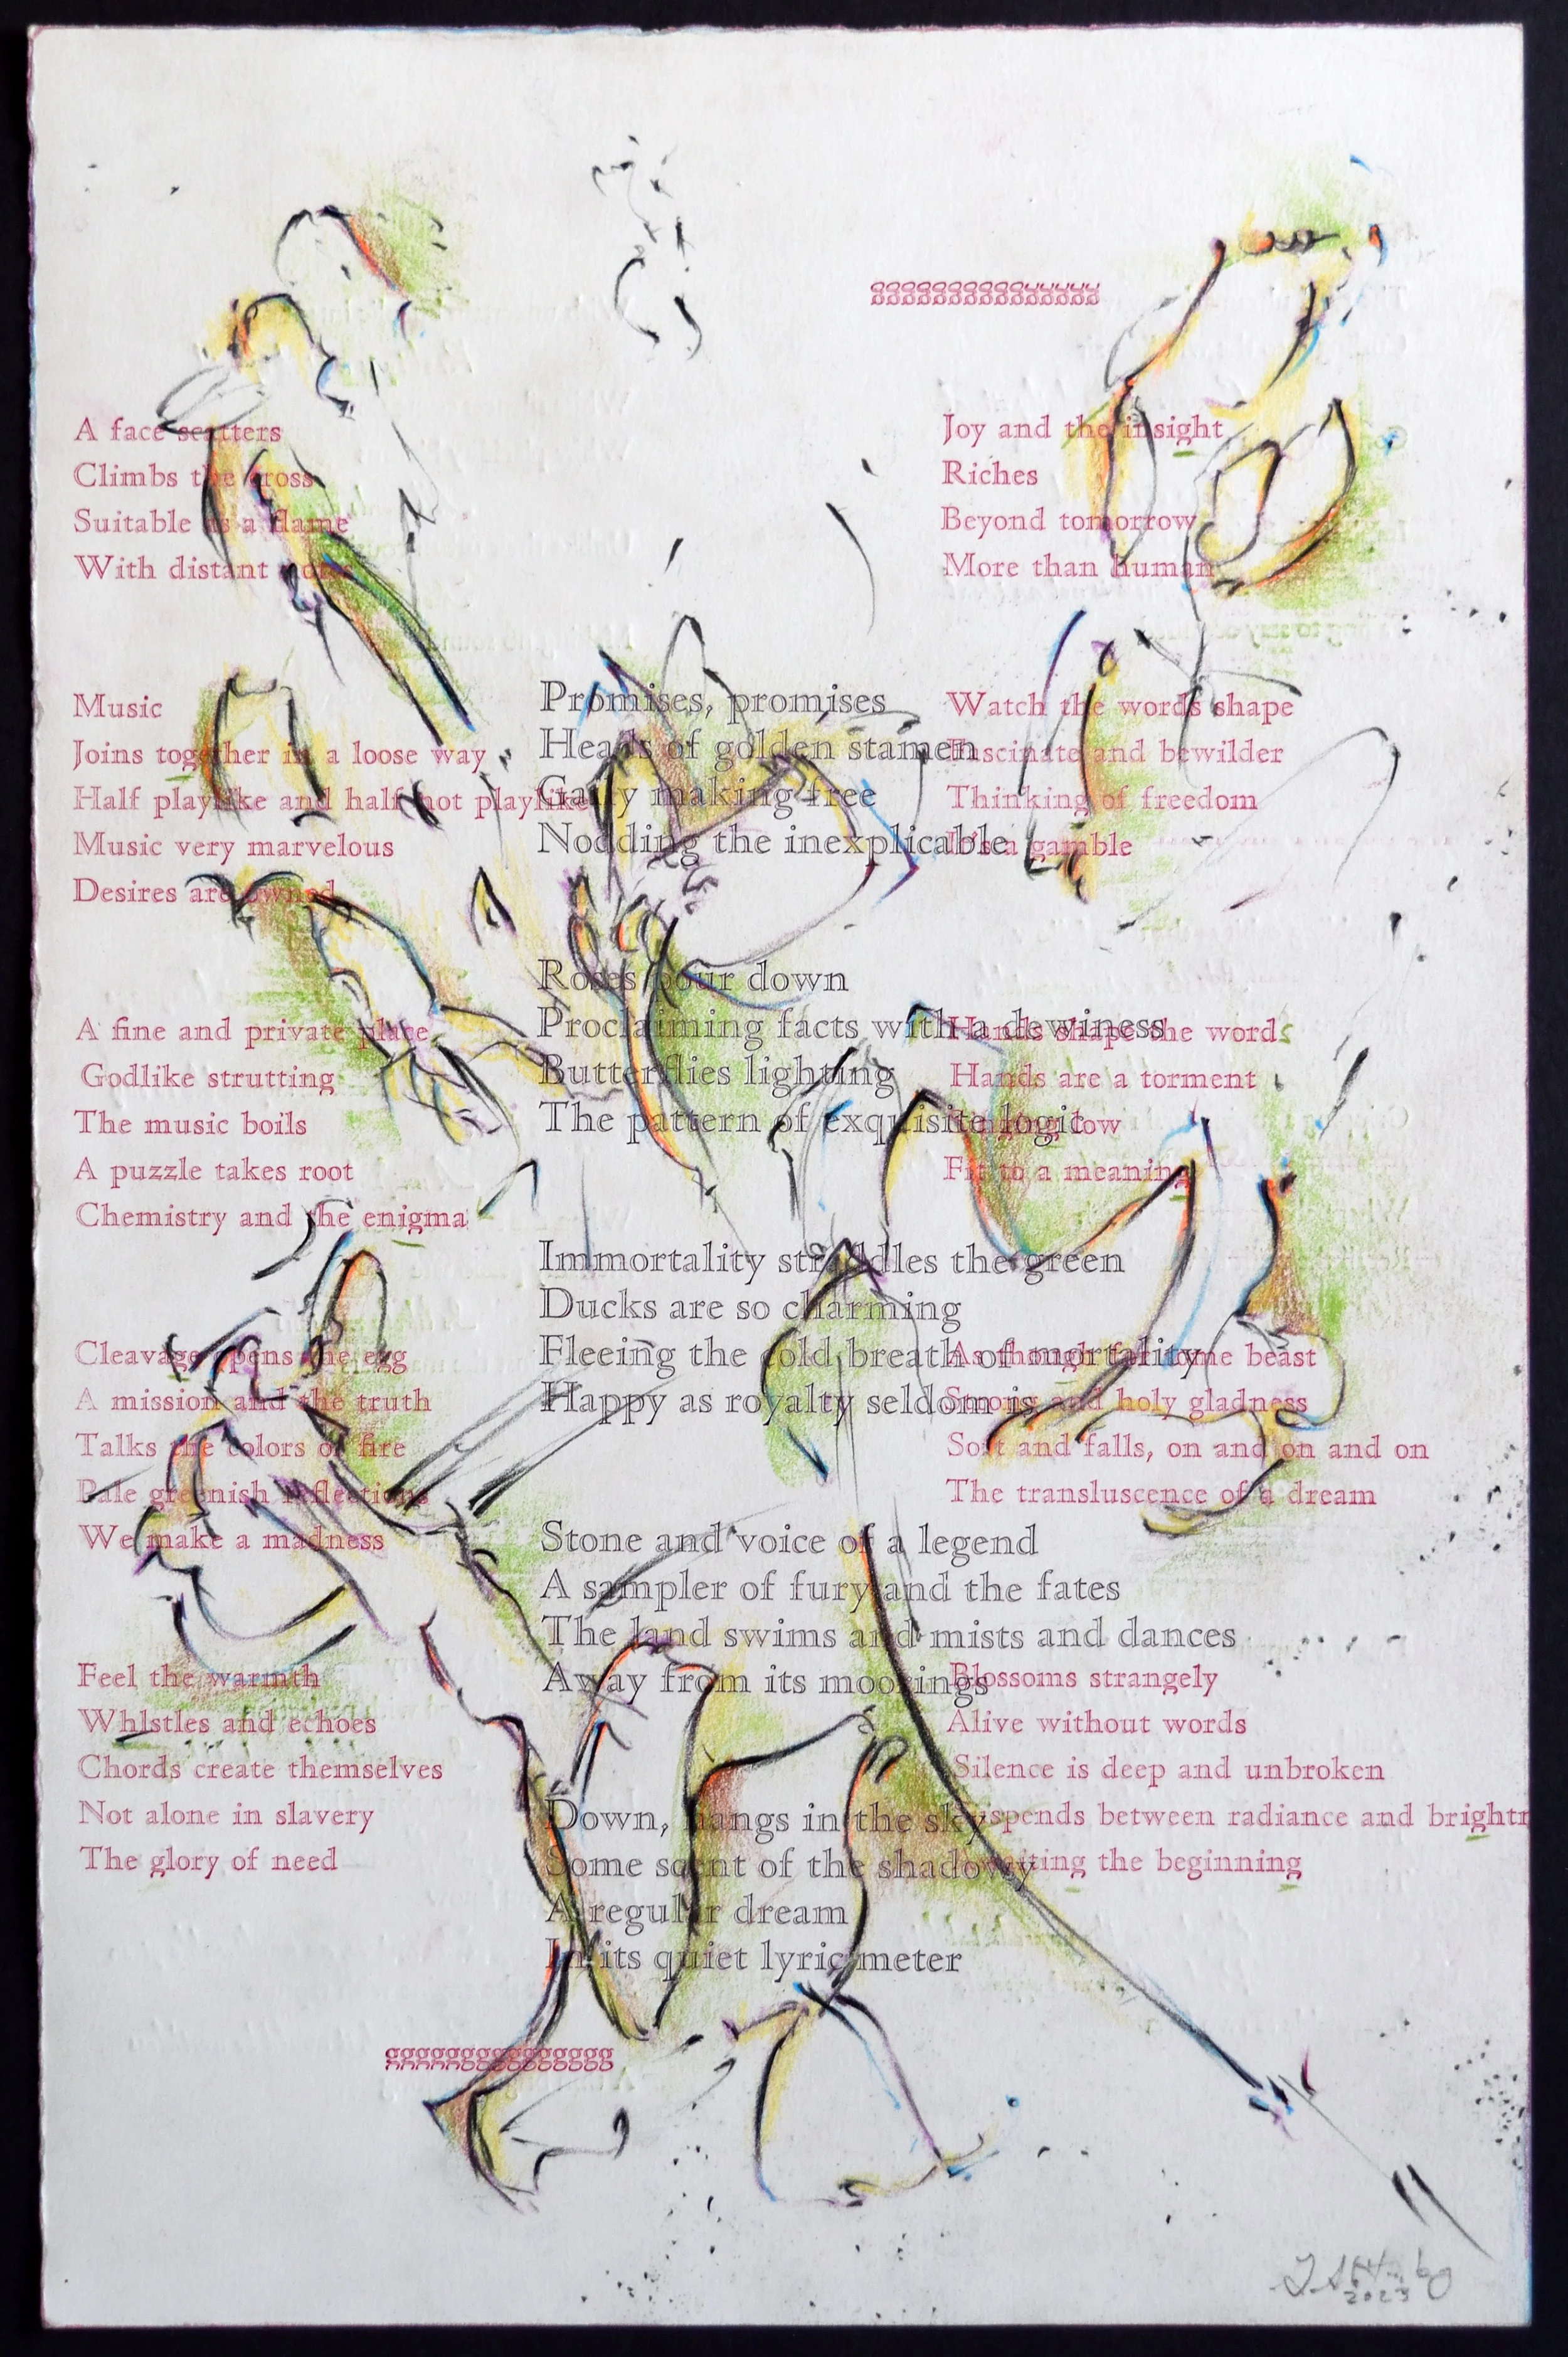 ggggggggggggggg
A face scatters
Climbs the cross
Suitable as a flame
With distant notes
Music
Joins together in a loose way
Half playlike and half not playlike
Music very marvelous
Desires are owned
A fine and private place
Godlike strutting
The music boils
A puzzle takes root
Chemistry and the enigma
Cleavage opens the egg
A mission and the truth
Talks the colors of fire
Pale greenish reflections
We make a madness
Feel the warmth
Whlstles and echoes
Chords create themselves
Not alone in slavery
The glory of need
Promises, promises
Heads of golden stamen
Gaily making free
Nodding the inexplicable
Roses pour down
Proclaiming facts with a dewiness
Butterflies lighting
The pattern of exquisite logic
Immortality straddles the green
Ducks are so charming
Fleeing the cold breath of mortality
Happy as royalty seldom is
Stone and voice of a legend
A sampler of fury and the fates
The land swims and mists and dances
Away from its moorings
Down, hangs in the sky
Some scent of the shadowy
A regular dream
In its quiet lyric meter
Joy and the insight
Riches
Beyond tomorrow
More than human
Watch the words shape
Fascinate and bewilder
Thinking of freedom
It's a gamble
Hands shape the words
Hands are a torment
low
Fit to a meaning
As though for some beast
Strong and holy gladness
Soft and falls, on and on and on
The transluscence of a dream
Blossoms strangely
Alive without words
Silence is deep and unbroken
Suspends between radiance and brightn
the beginning
ggggggggggggggg
2023